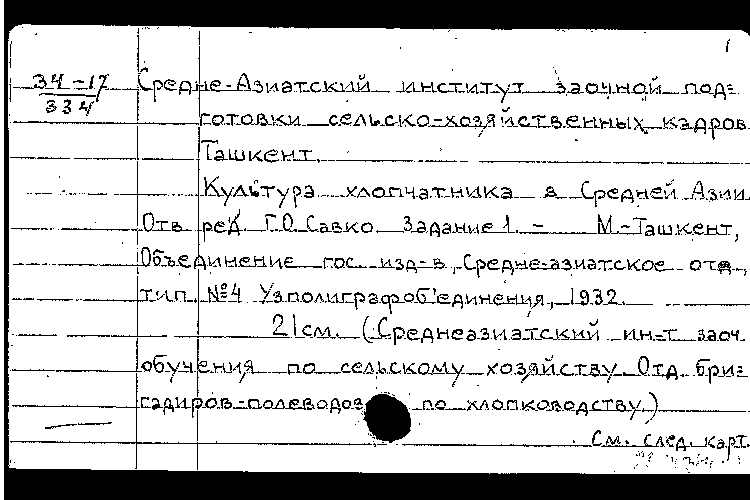 1
34-17
334
Средне-Азиатский институт заочной под=
готовки сельско-хозяйственных кадров
Ташкент.
Культура хлопчатника в Средней Азии
Отв ред. Г.О.Савко. Задание 1. - М.-Ташкент,
Объединение гос. изд-в, Средне-азиатское отд.,
тип. №4 Узполиграфоб'единения, 1932.
21см. (Среднеазиатский ин-т заоч
обучения по сельскому хозяйству. Отд. бри=
гадиров-полеводов по хлопководству.)
См. след. карт.